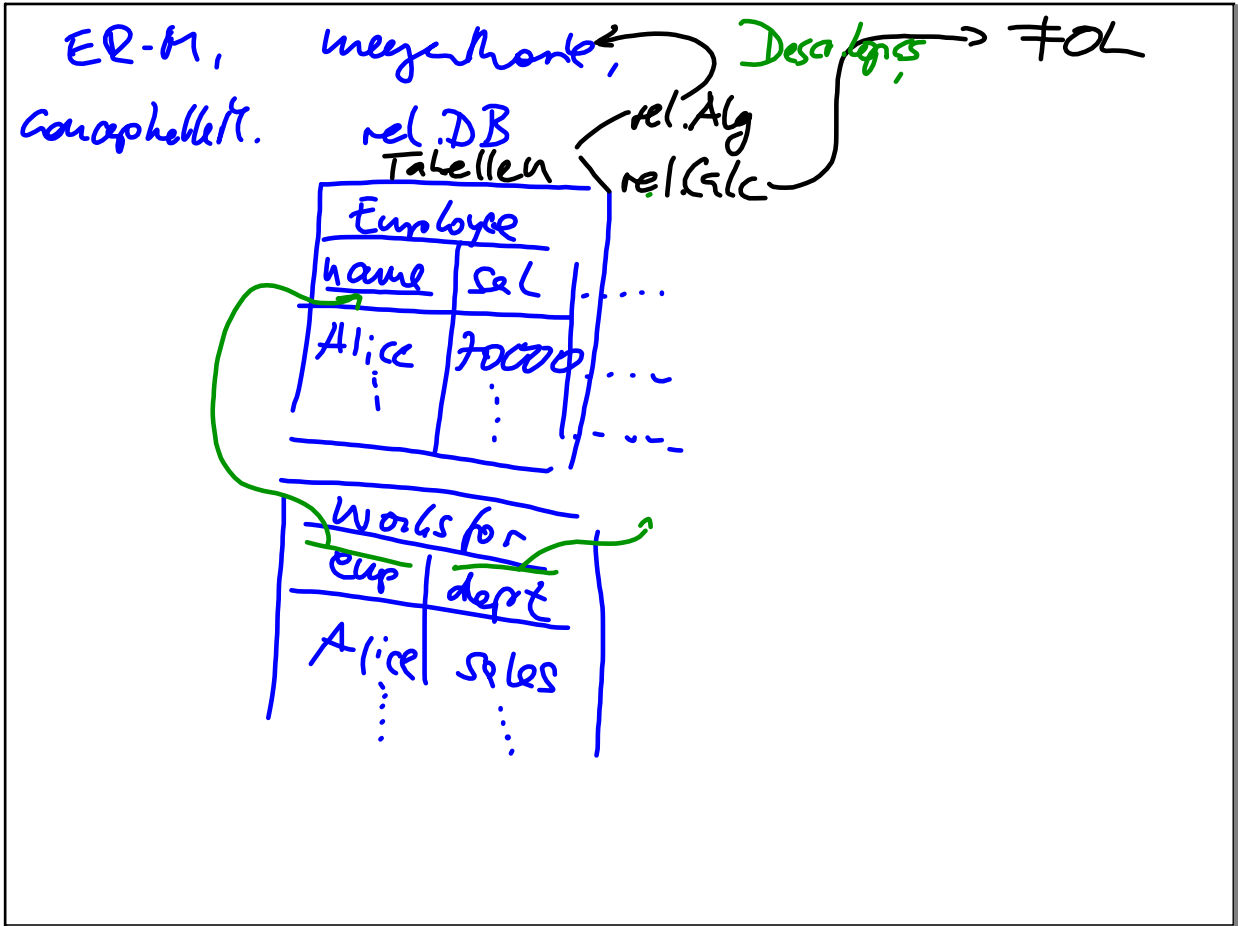 ER-M, mengentheorie, Descr. Logics, FOL
Conceptuelle M. rel. DB rel. Alg
Tabellen rel. Calc
Employee
name sal
Alice 70000
Works for
emp dept
Alice sales